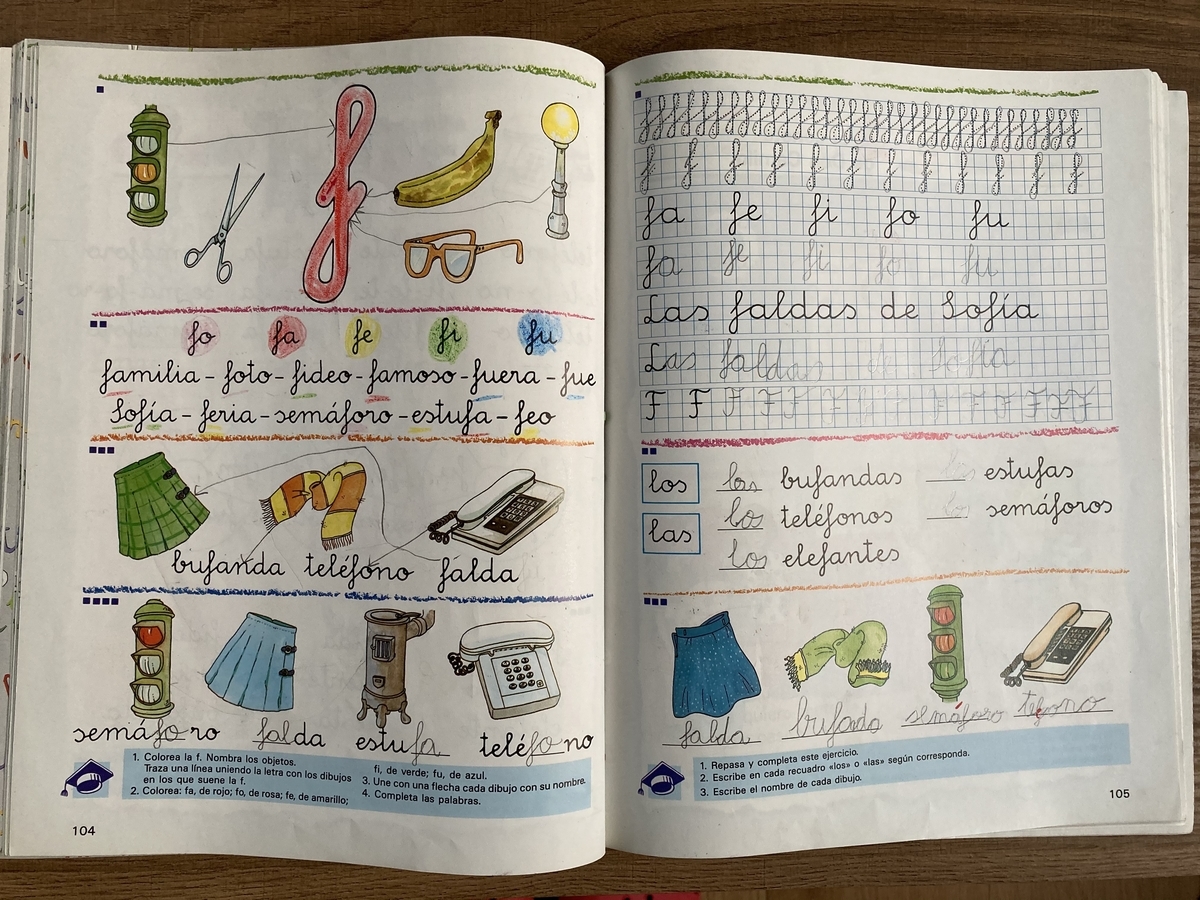 f
fo fa fe fi fu
familia - foto - fideo - famoso - fuera - fue
Sofía - feria - semáforo - estufa - feo
bufanda teléfono falda
semáforo falda estufa teléfono
1. Colorea la f. Nombra los objetos.
Traza una línea uniendo la letra con los dibujos
en los que suene la f.
2. Colorea: fa, de rojo; fo, de rosa; fe, de amarillo;
fi, de verde; fu, de azul.
3. Une con una flecha cada dibujo con su nombre.
4. Completa las palabras.
104
f f f f f f f f f f f f
fa fe fi fo fu
fa fe fi fo fu
Las faldas de Sofía
Las faldas de Sofía
F F F F F F F F F F F F
los las bufandas estufas
las lo teléfonos semáforos
los elefantes
falda bufada semáforo tefono
1. Repasa y completa este ejercicio.
2. Escribe en cada recuadro «los» o «las» según corresponda.
3. Escribe el nombre de cada dibujo.
105